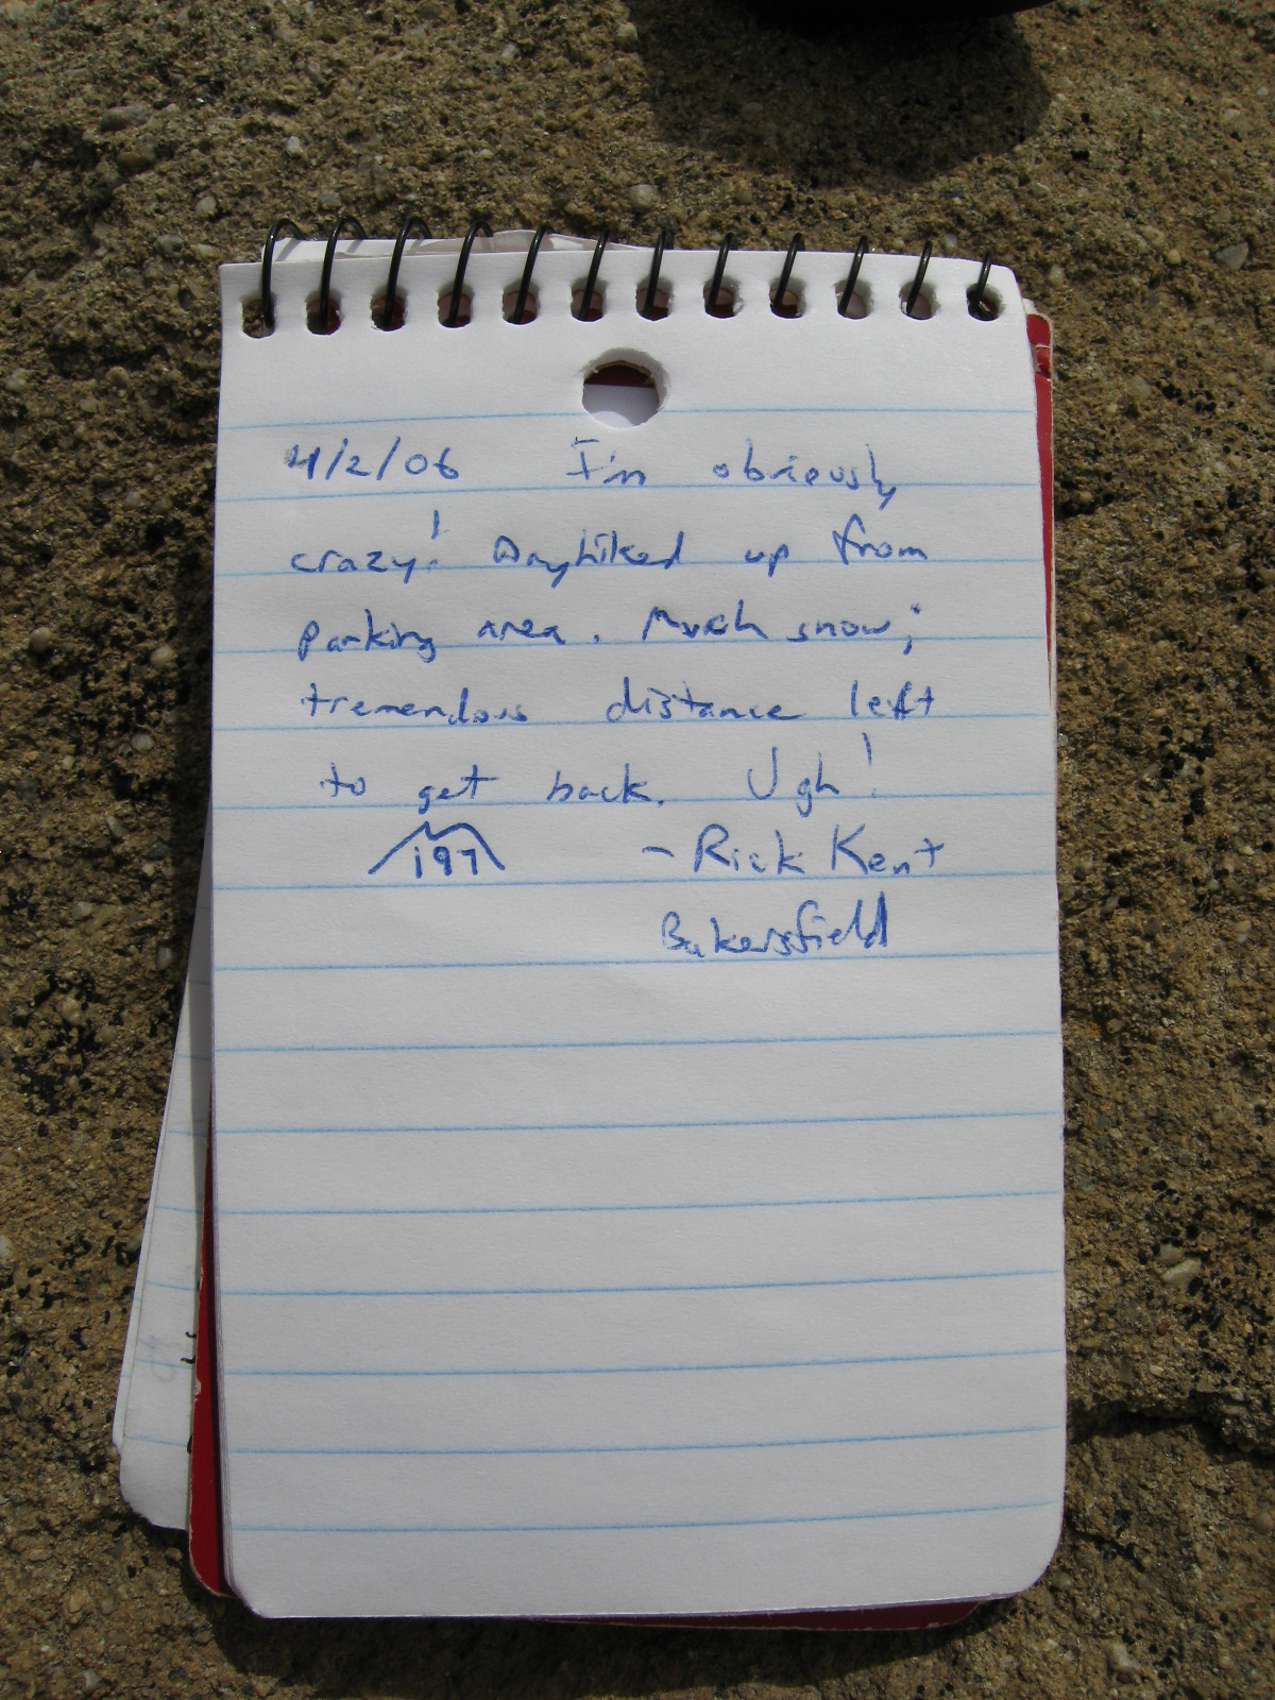 4/2/06 I'm obviously
crazy! Dayhiked up from
parking area. Much snow;
tremendous distance left
to get back. Ugh!
197 - Rick Kent
Bakersfield